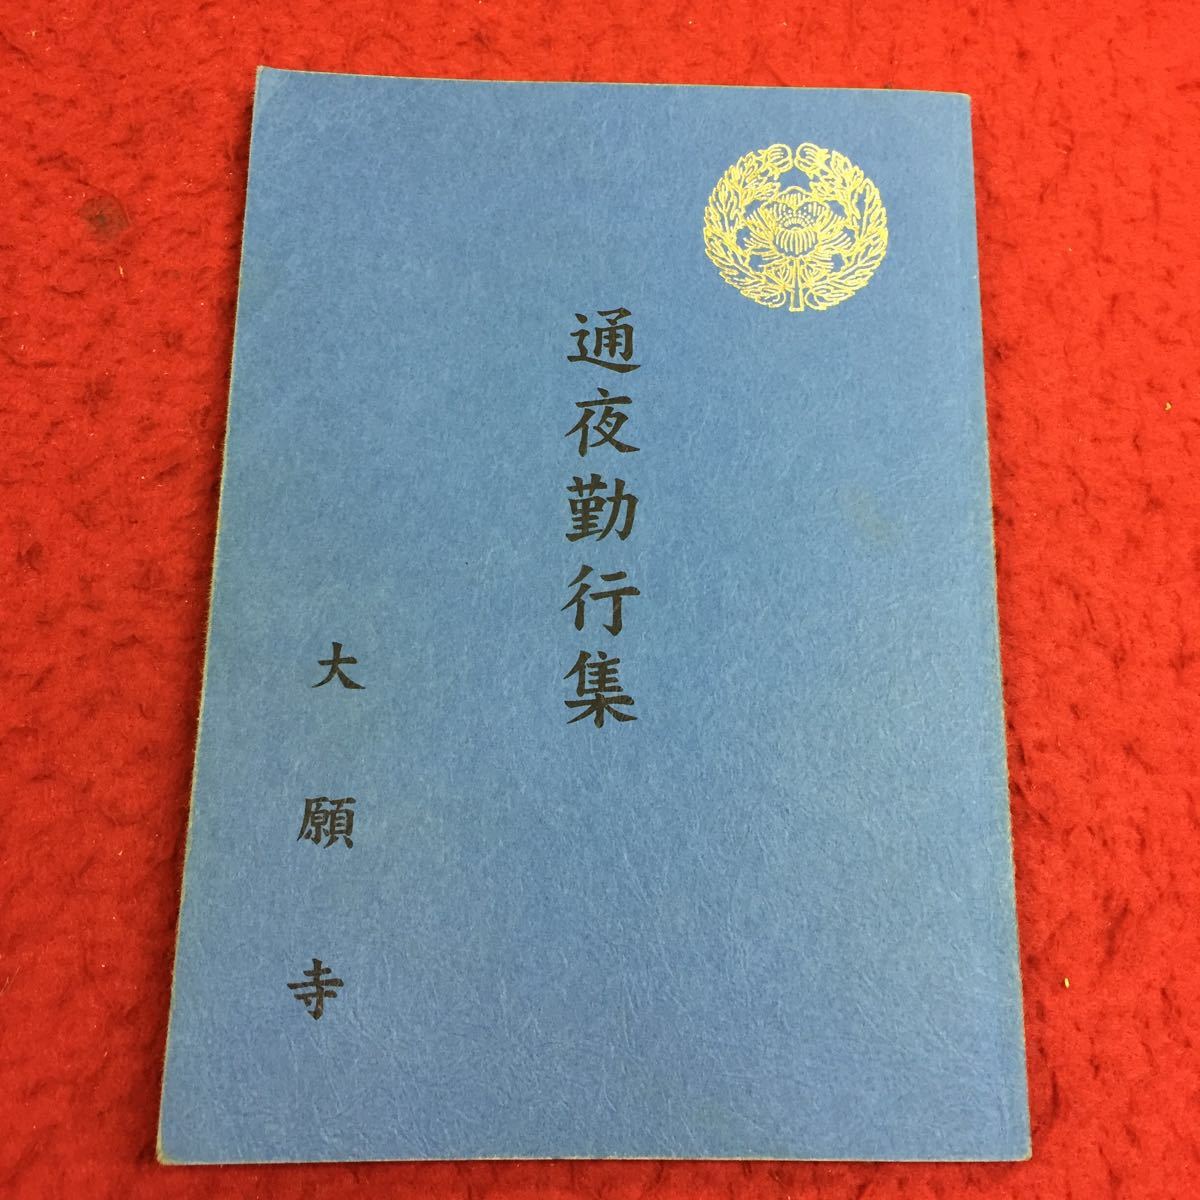 通夜勤行集
大願寺